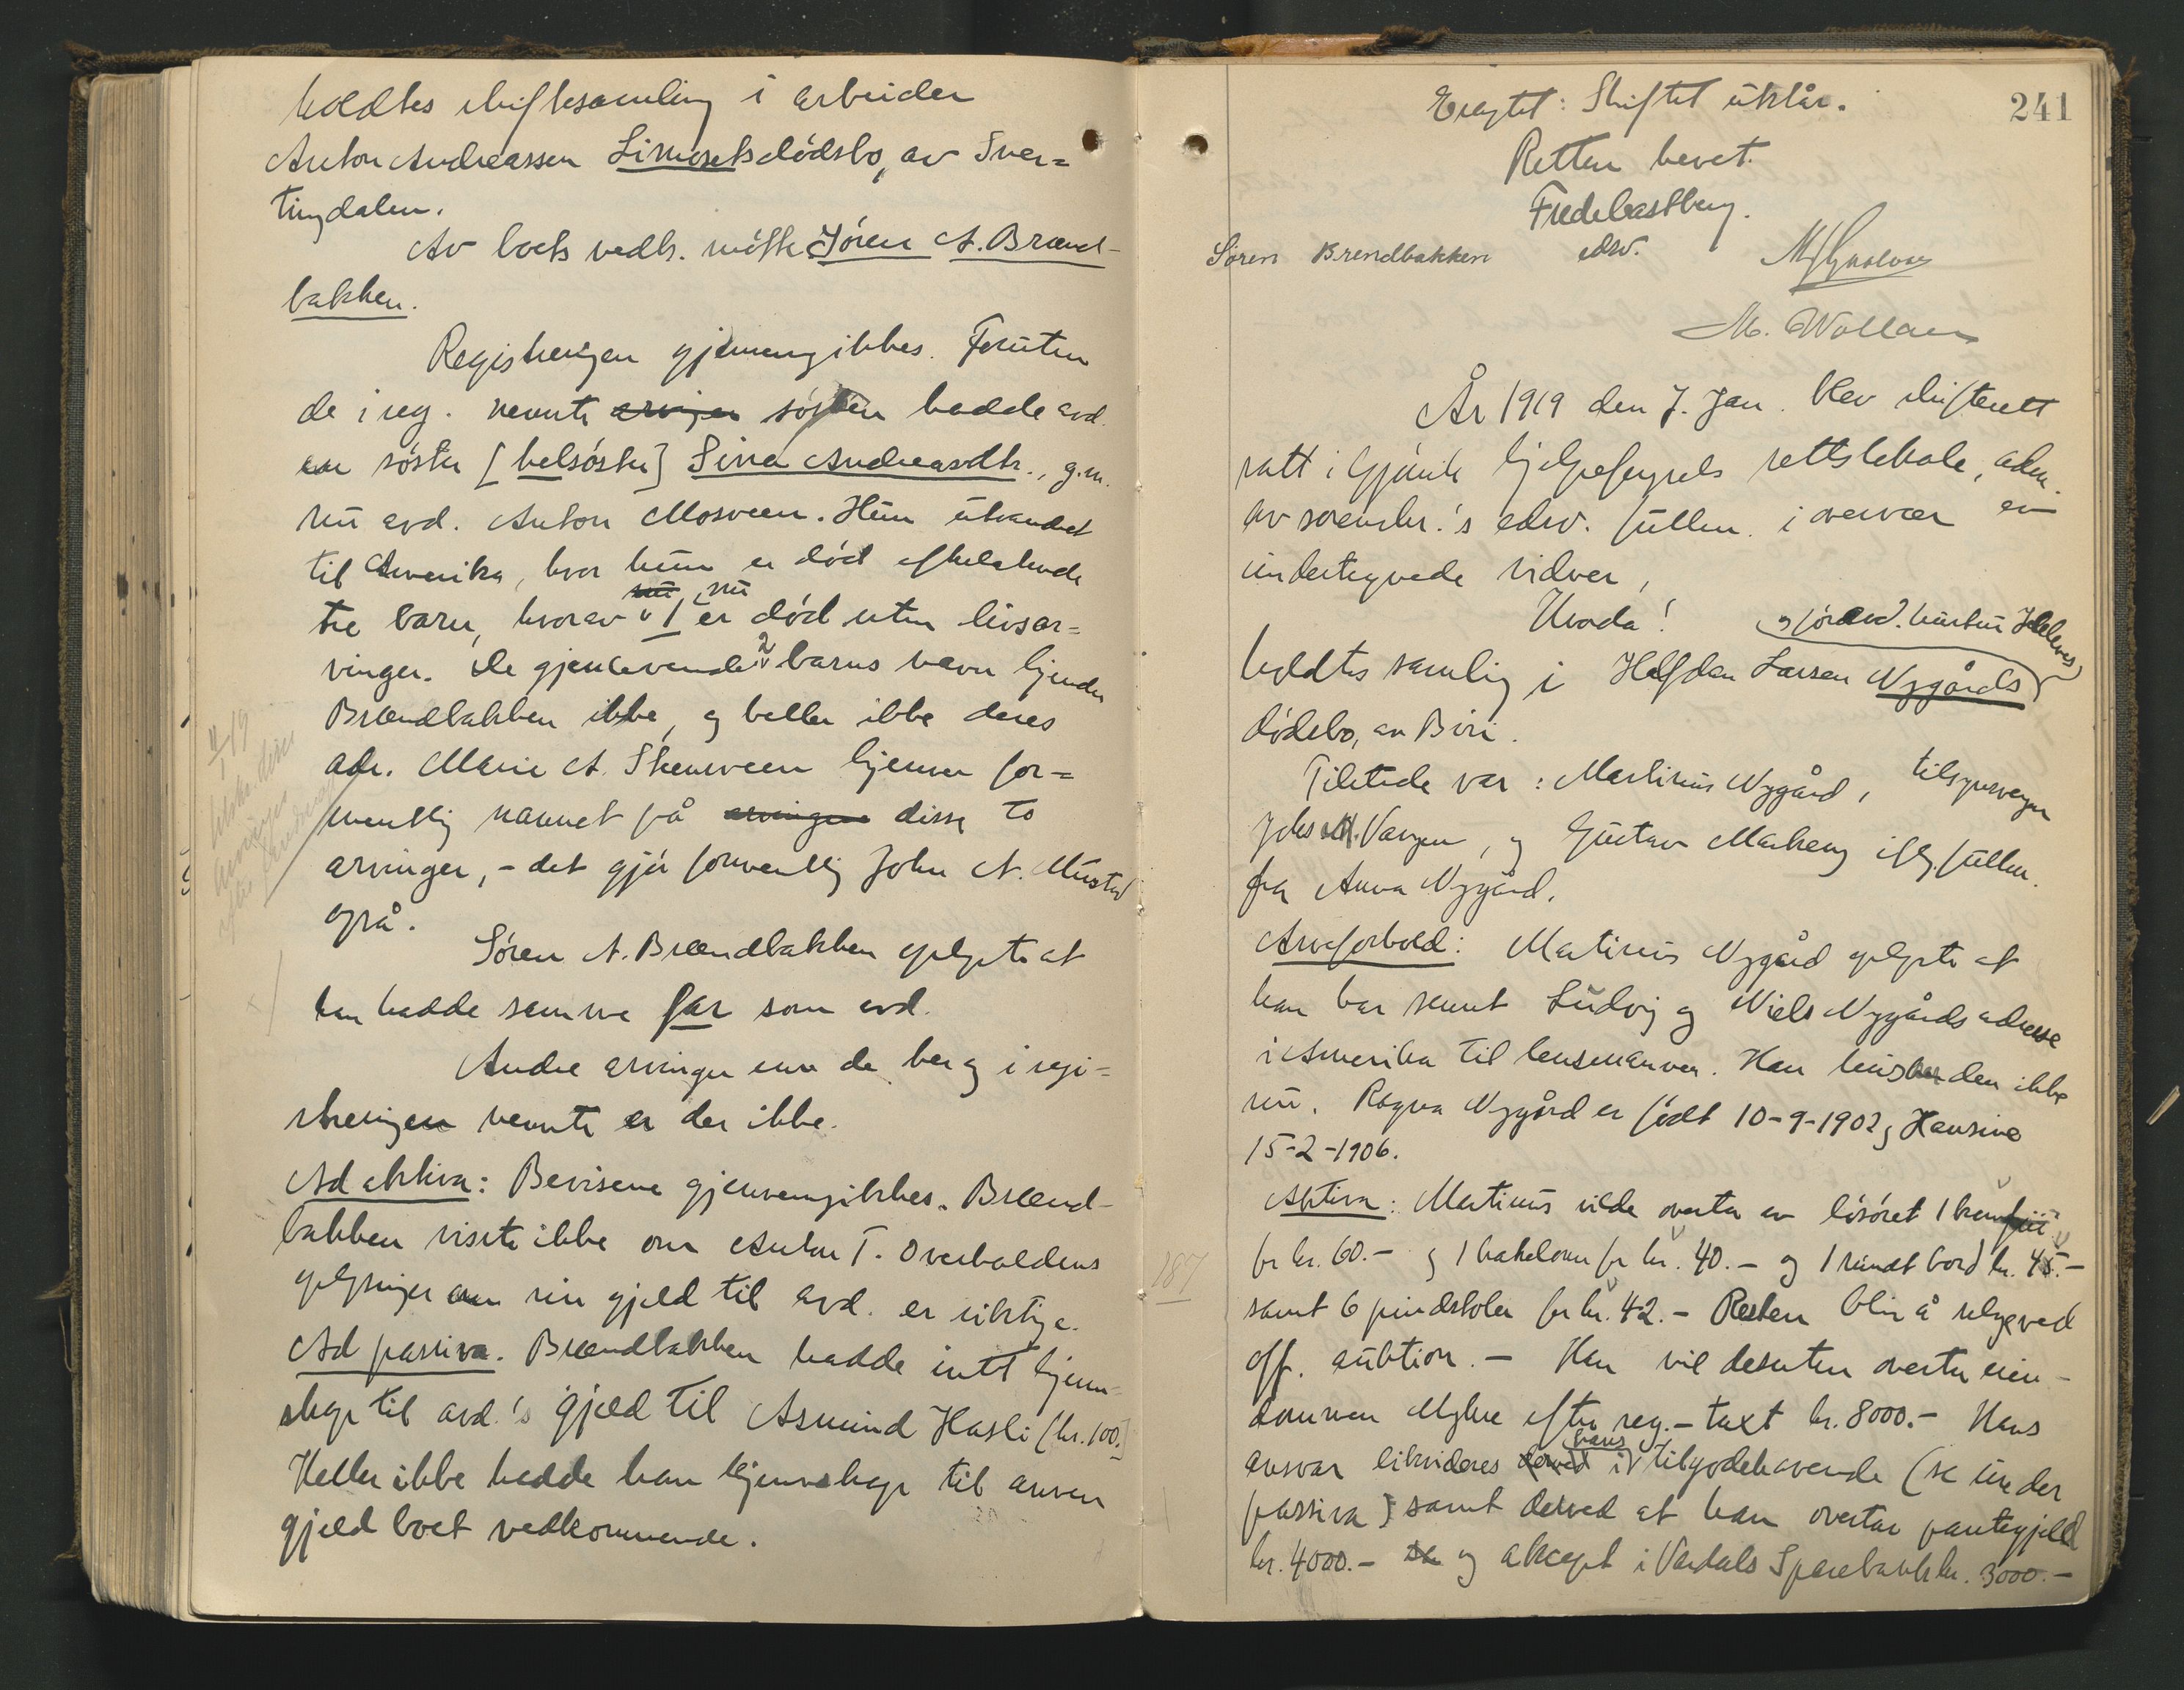 holdtes skiftesamling i arbeider
Anton Andreassen Limosets dödsbo, av Sner=
tingdalen.
Av boets vedk. mötte Sören A. Brænd-
bakken.
Registreringen gjennemgikkes. Foruten
de i reg. nevnte arvinger søsken hadde avd.
en søster [helsøster] Sina Andreasdtr., g.m.
nu avd. Anton Mosveen. Hun utvandret
til Amerika, hvor hun er død efterlatende
tre barn, hvorav 1 nu er død uten livsar=
vinger. De gjenlevende 2 barns navn kjender
Brændbakken ikke, og heller ikke deres
adr. Marie A. Skenveen kjenner for=
mentlig navnet på arvingene disse to
arvinger, - det gjør formentlig John A. Mustad
også.
Søren A. Brændbakken oplyste at
han hadde samme far som avd.
Andre arvinger enn de her og i regi=
streringen nevnte er der ikke.
Ad aktiva: Bevisene gjennemgikkes. Brænd-
bakken visste ikke om Anton T. Overbaldens
oplysninger om sin gjeld til avd. er riktige.
Ad passiva. Brændbakken hadde intt kjenn-
skap til avd.'s gjæld til Asmund Hasli (kr. 100.)
Heller ikke hadde han kjennskap til annen
gjæld boet vedkommende.
241
Eragtet: Skiftet utstår.
Retten hevet.
Fredebastberg.
Sören Brendbakken edsv.
M. Wollan
År 1919 den 7. Jan. blev skifterett
satt i Gjövik hjelpefengsels rettslokale, adm.
av sorenskr.'s edsv. fullm. i overvær av
undertegnede vidner,
Hvoda!
og föravd. hustru
holdtes samling i Halfdan Larsen Nygårds
dödsbo, av Biri.
Tilstede var: Martinius Nygård, tilsynsverge
Johs M. Vangen, og Gustav Markeng iflg. fullm.
fra Anna Nygård.
Arveforhold: Martinius Nygård oplyste at
han har sennt Ludvig og Niels Nygårds adresse
i Amerika til lensmannen. Han husker den ikke
nu. Ragna Nygård er født 10-9-1902 og Hansine
15-2-1906.
Aktiva: Martinius vilde overta av lösöret 1
for kr. 60.- og 1 kakelovn for kr. 40.- og 1 rundt bord kr. 45.-
187
samt 6 pindstoler for kr. 42.- Resten blir å selge ved
off. auktion. - Han vil desuten overta eien-
dommen Myhre efter reg.-taxt kr. 8000.- Hans
ansvar likvideres derved i hans tilgodehavende (se under
passiva) samt derved at han overtar pantegjeld
kr. 4000.- og aksept i Vardals Sparebank kr. 3000.-